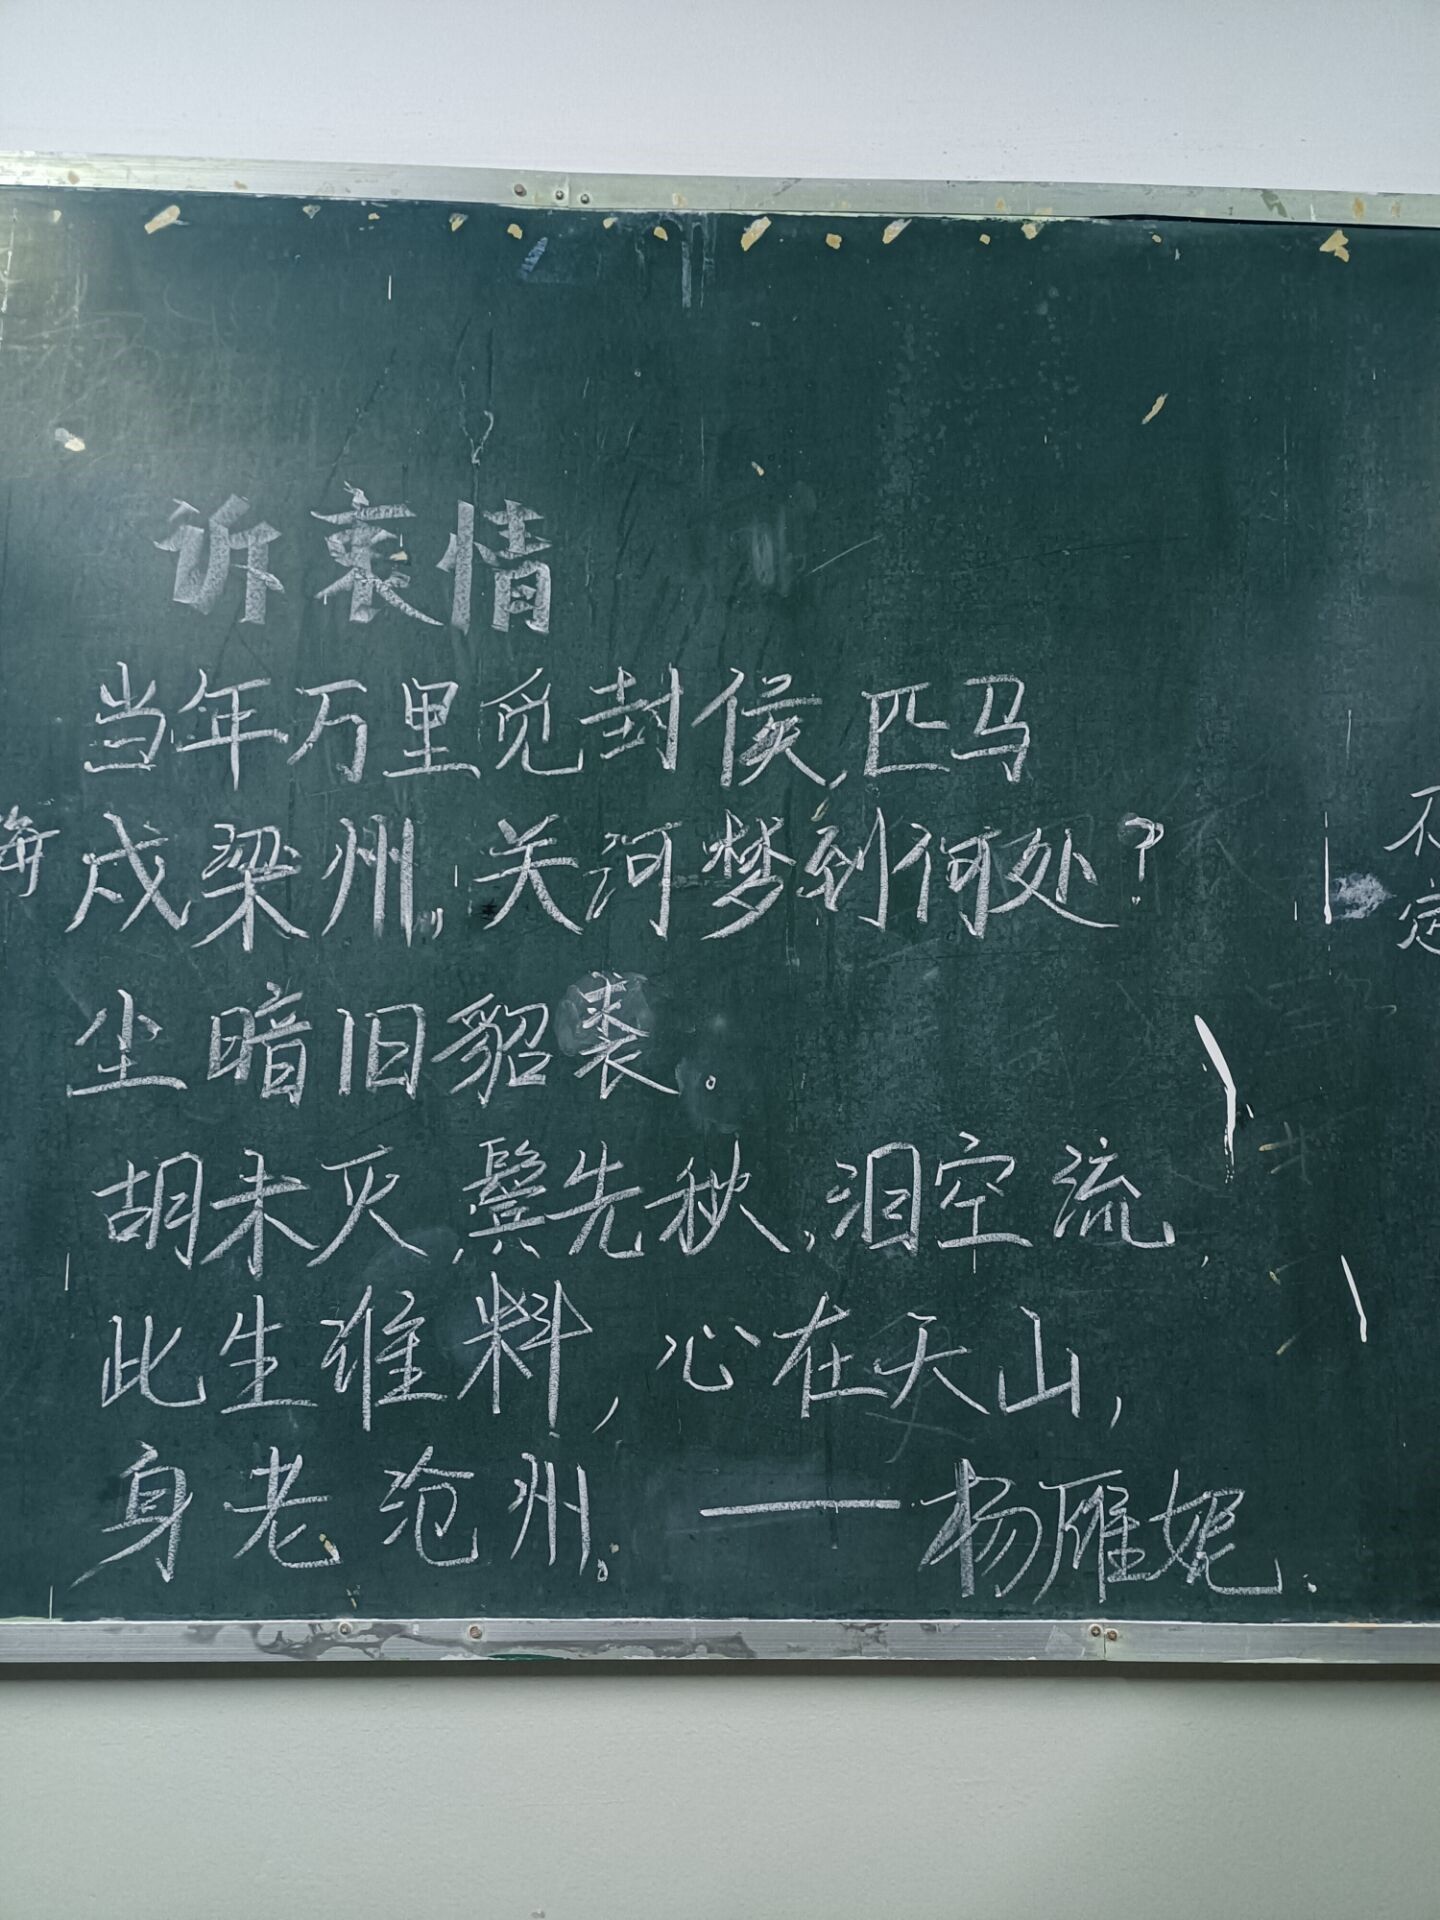 诉衷情
当年万里觅封侯,匹马
戍梁州,关河梦到何处?
尘暗旧貂裘。
胡未灭,鬓先秋,泪空流,
此生谁料,心在天山,
身老沧州。——杨雁妮.
海
不
定